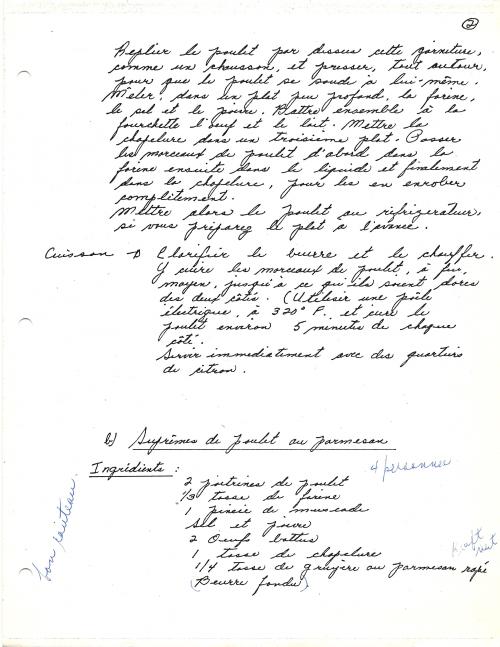 2
Replier le poulet par dessus cette garniture,
comme un chausson, et presser, tout autour,
pour que le poulet se soude à lui-même.
Mêler, dans un plat peu profond, la farine,
le sel et le poivre. Battre ensemble à la
fourchette l'oeuf et le lait. Mettre la
chapelure dans un troisième plat. Passer
les morceaux de poulet d'abord dans la
farine ensuite dans le liquide et finalement
dans la chapelure, pour les en enrober
complètement.
Mettre alors le poulet au réfrigérateur,
si vous préparez le plat à l'avance.
Cuisson → Clarifier le beurre et le chauffer.
Y cuire les morceaux de poulet, à feu
moyen, jusqu'à ce qu'ils soient dorés
des deux côtés. (Utiliser une poêle
électrique, à 320° F. et cuire le
poulet environ 5 minutes de chaque
côté.
Servir immédiatement avec des quartiers
de citron.
b) Suprêmes de poulet au parmesan
4 personnes
Ingrédients :
2 poitrines de poulet
1/3 tasse de farine
1 pincée de muscade
Sel et poivre
2 Oeufs battus
1 tasse de chapelure
1/4 tasse de gruyère ou parmesan rapé
(Beurre fondu)
Kraft